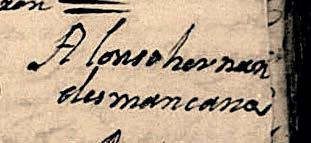 Alonso hernan
des mancana